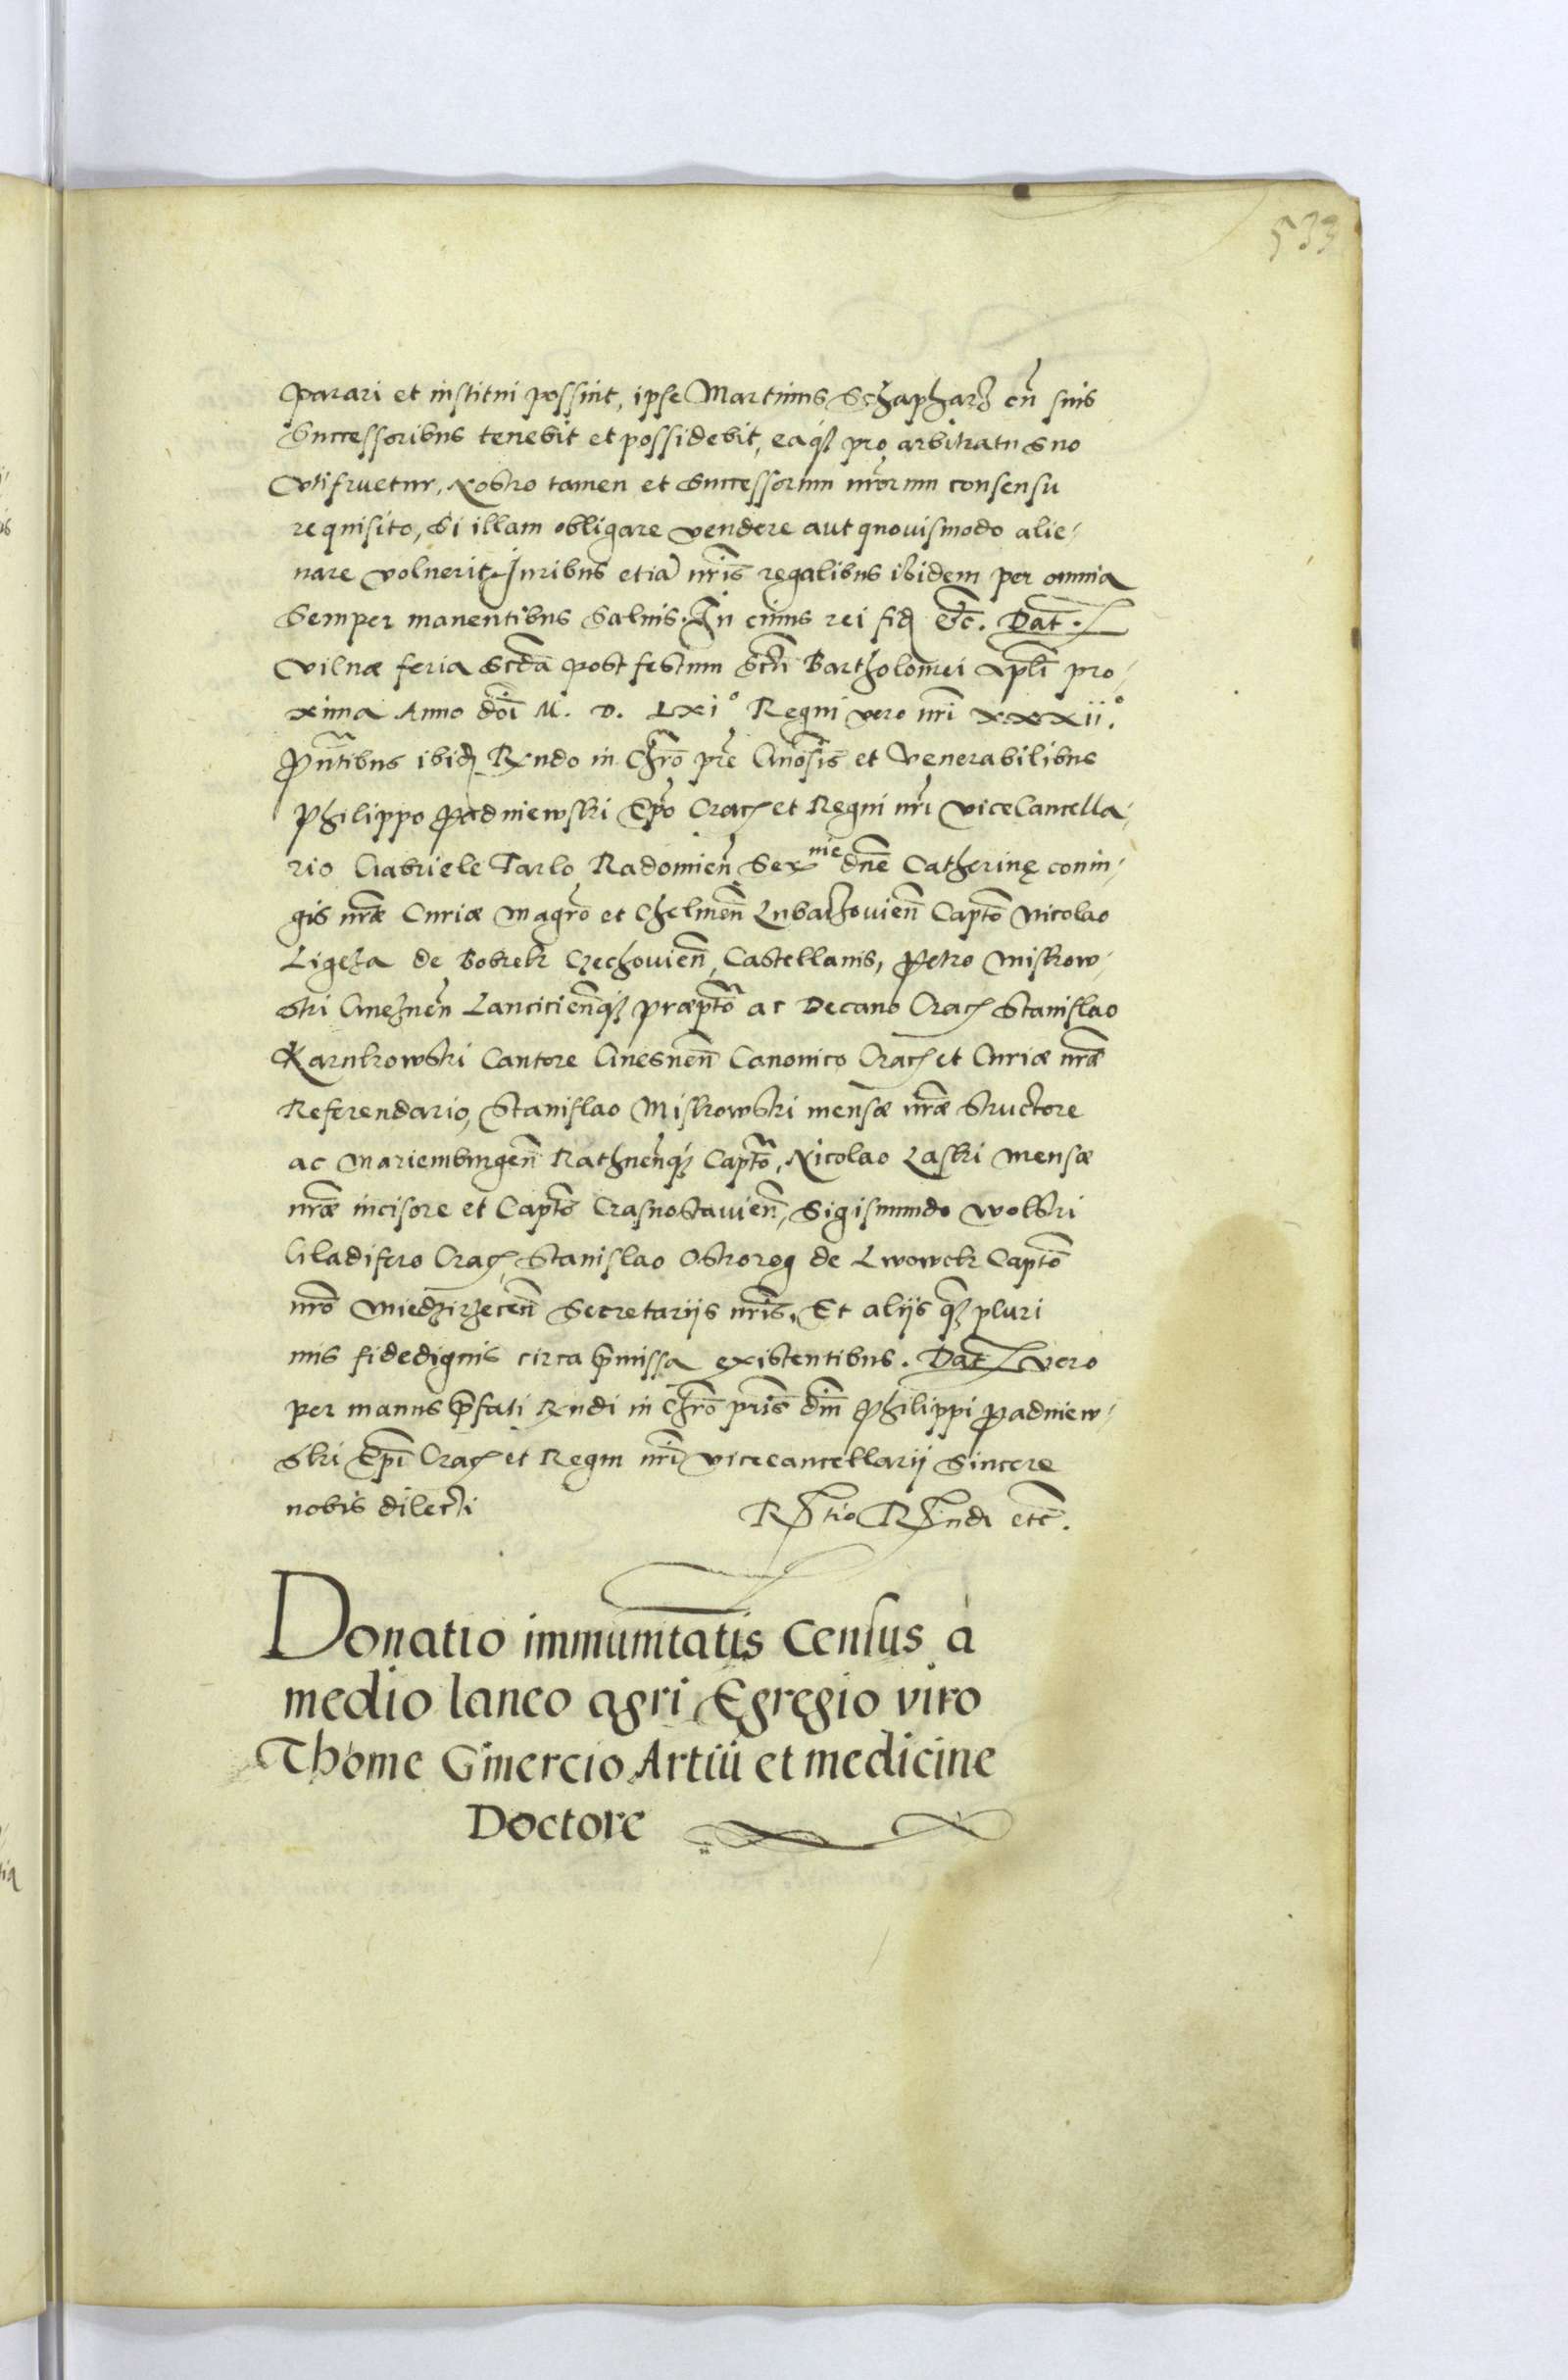 533
parari et institui possint, ipse Martinus Schapharz cū suis
Successoribus tenebit et possidebit, eaq₃ pro arbitratu suo
Vtifruetur, Nostro tamen et Successorum nrōrum consensu
requisito, Si illam obligare vendere aut quouismodo alie-
nare voluerit, Juribus etiā nrīs regalibus ibidem per omnia
Semper manentibus Saluis. In cuius rei fid etc̄. Dat̄.
Vilnæ feria Scdā post festum Sctī Bartholomei Aplī pro-
xima Anno doī M. D. LXiº Regni vero nrī xxxii.º
Pn̄tibus ibid Rndo in Chrō pre Gnōsis et Venerabilibus
Philippo Padniewski Epō Crac et Regni nrī ViceCancella-
rio Gabriele Tarlo Radomien̄ Serᵐⁱᵉ dnē Catherinę coniu-
gis nrāe Curiæ Magrō et Chelmen̄ Lubachouien̄ Captō Nicolao
Ligęza de Bobrek Czechouien̄, Castellanis, Petro Miskow-
ski Gneznen̄ Lancicien̄q₃ præptō ac Decano Crac Stanislao
Karnkowski Cantore Gnesnen̄ Canonico Crac et Curiæ nrāe
Referendario, Stanislao Miskowski mensæ nrāe structore
ac Mariemburgen̄ Rathnen̄q₃ Captō, Nicolao Laski Mensæ
nrāe incisore et Captō Crasnostauien̄, Sigismundo Wolski
Gladifero Crac, Stanislao Ostrorog de Lwowek Captō
nrō Miedzirzecen̄ Secretarijs nrīs, Et alijs q₃ pluri
mis fidedignis circa p̄missa existentibus. Dat̄ vero
per manus p̄fati Rndi in Chrō prīs dn̄i Philippi Padniew-
ski Epī Crac et Regni nrī vicecancellarij Sincere
nobis dilecti
Rtio Rndi etc̄.
Donatio immunitatis Census à
medio laneo agri Egregio viro
Thome Gmercio Artiū et medicine
Doctore